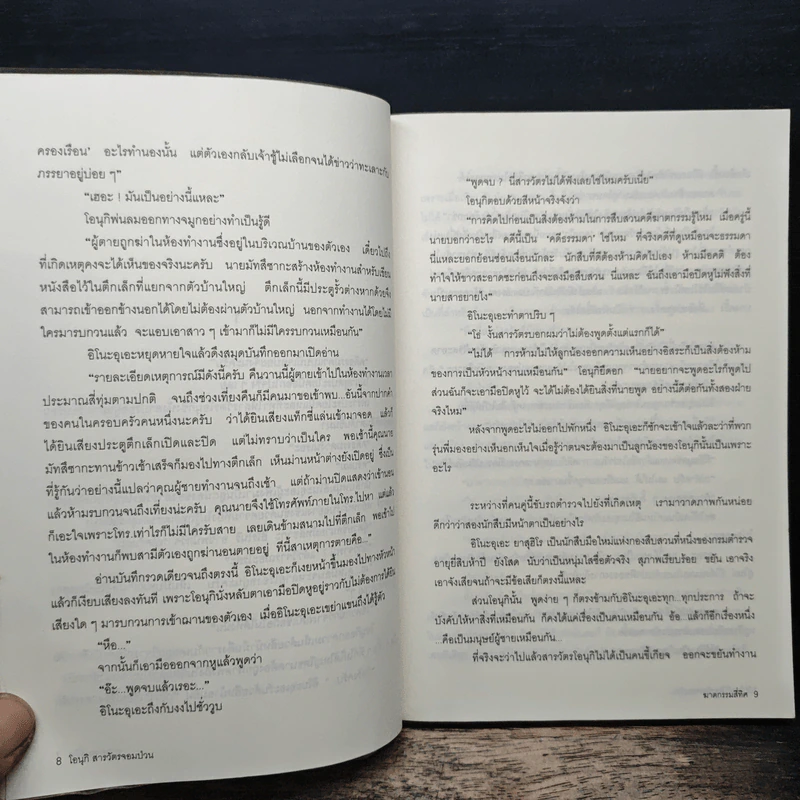 ครองเรือน' อะไรทำนองนั้น แต่ตัวเองกลับเจ้าชู้ไม่เลือกจนได้ข่าวว่าทะเลาะกับ
ภรรยาอยู่บ่อย ๆ"
"เฮอะ ! มันเป็นอย่างนี้แหละ"
โอนุกิพ่นลมออกทางจมูกอย่างทำเป็นรู้ดี
"ผู้ตายถูกฆ่าในห้องทำงานซึ่งอยู่ในบริเวณบ้านของตัวเอง เดี๋ยวไปถึง
ที่เกิดเหตุคงจะได้เห็นของจริงนะครับ นายมัทสึซากะสร้างห้องทำงานสำหรับเขียน
หนังสือไว้ในตึกเล็กที่แยกจากตัวบ้านใหญ่ ตึกเล็กนี้มีประตูรั้วต่างหากด้วยจึง
สามารถเข้าออกข้างนอกได้โดยไม่ต้องผ่านตัวบ้านใหญ่ นอกจากทำงานได้โดยไม่มี
ใครมารบกวนแล้ว จะแอบเอาสาว ๆ เข้ามาก็ไม่มีใครรบกวนเหมือนกัน"
อิโนะอุเอะหยุดหายใจแล้วดึงสมุดบันทึกออกมาเปิดอ่าน
"รายละเอียดเหตุการณ์มีดังนี้ครับ คืนวานนี้ผู้ตายเข้าไปในห้องทำงานเวลา
ประมาณสี่ทุ่มตามปกติ จนถึงช่วงเที่ยงคืนก็มีคนมาขอเข้าพบ...อันนี้จากปากคำ
ของคนในครอบครัวคนหนึ่งนะครับ ว่าได้ยินเสียงแท็กซี่แล่นเข้ามาจอด แล้วก็
ได้ยินเสียงประตูตึกเล็กเปิดและปิด แต่ไม่ทราบว่าเป็นใคร พอเช้านี้คุณนาย
มัทสึซากะทานข้าวเช้าเสร็จก็มองไปทางตึกเล็ก เห็นม่านหน้าต่างยังเปิดอยู่ ซึ่งเป็น
ที่รู้กันว่าอย่างนี้แปลว่าคุณผู้ชายทำงานจนถึงเช้า แต่ถ้าม่านปิดแสดงว่าเข้านอน
แล้วห้ามรบกวนจนถึงเที่ยงน่ะครับ คุณนายจึงใช้โทรศัพท์ภายในโทร.ไปหา แต่แล้ว
ก็เอะใจเพราะโทร.เท่าไรก็ไม่มีใครรับสาย เลยเดินข้ามสนามไปที่ตึกเล็ก พอเข้าไป
ในห้องทำงานก็พบสามีตัวเองถูกฆ่านอนตายอยู่ ทีนี้สาเหตุการตายคือ..."
อ่านบันทึกรวดเดียวจนถึงตรงนี้ อิโนะอุเอะก็เงยหน้าขึ้นมองไปทางหัวหน้า
แล้วก็เงียบเสียงลงทันที เพราะโอนุกินั่งหลับตาเอามือปิดหูอยู่ราวกับไม่ต้องการได้ยิน
เสียงใด ๆ มารบกวนการเข้าฌานของตัวเอง เมื่ออิโนะอุเอะเขย่าแขนถึงได้รู้ตัว
"หือ..."
จากนั้นก็เอามือออกจากหูแล้วพูดว่า
"อ๊ะ...พูดจบแล้วเรอะ..."
อิโนะอุเอะถึงกับงงไปชั่ววูบ
8 โอนุกิ สารวัตรจอมป่วน
"พูดจบ ? นี่สารวัตรไม่ได้ฟังเลยใช่ไหมครับเนี่ย"
โอนุกิตอบด้วยสีหน้าจริงจังว่า
"การคิดไปก่อนเป็นสิ่งต้องห้ามในการสืบสวนคดีฆาตกรรมรู้ไหม เมื่อครู่นี้
นายบอกว่าอะไร คดีนี้เป็น 'คดีธรรมดา' ใช่ไหม ที่จริงคดีที่ดูเหมือนจะธรรมดา
นี่แหละยอกย้อนซ่อนเงื่อนนักละ นักสืบที่ดีต้องห้ามคิดไปเอง ห้ามมีอคติ ต้อง
ทำใจให้ขาวสะอาดซะก่อนถึงจะลงมือสืบสวน นี่แหละ ฉันถึงเอามือปิดหูไม่ฟังสิ่งที่
นายสาธยายไง"
อิโนะอุเอะทำตาปริบ ๆ
"โธ่ งั้นสารวัตรบอกผมว่าไม่ต้องพูดตั้งแต่แรกก็ได้"
"ไม่ได้ การห้ามไม่ให้ลูกน้องออกความเห็นอย่างอิสระก็เป็นสิ่งต้องห้าม
ของการเป็นหัวหน้างานเหมือนกัน" โอนุกิยืดอก "นายอยากจะพูดอะไรก็พูดไป
ส่วนฉันก็จะเอามือปิดหูไว้ จะได้ไม่ต้องได้ยินสิ่งที่นายพูด อย่างนี้ดีต่อกันทั้งสองฝ่าย
จริงไหม"
หลังจากพูดอะไรไม่ออกไปพักหนึ่ง อิโนะอุเอะก็ชักจะเข้าใจแล้วละว่าที่พวก
รุ่นพี่มองอย่างเห็นอกเห็นใจเมื่อรู้ว่าตนจะต้องมาเป็นลูกน้องของโอนุกินั้นเป็นเพราะ
อะไร
ระหว่างที่คนคู่นี้ขับรถตำรวจไปยังที่เกิดเหตุ เรามาวาดภาพกันหน่อย
ดีกว่าว่าสองนักสืบมีหน้าตาเป็นอย่างไร
อิโนะอุเอะ ยาสุฮิโร เป็นนักสืบมือใหม่แห่งกองสืบสวนที่หนึ่งของกรมตำรวจ
อายุยี่สิบห้าปี ยังโสด นับว่าเป็นหนุ่มใสซื่อตัวจริง สุภาพเรียบร้อย ขยัน เอาจริง
เอาจังเสียจนถ้าจะมีข้อเสียก็ตรงนี้แหละ
ส่วนโอนุกินั้น พูดง่าย ๆ ก็ตรงข้ามกับอิโนะอุเอะทุก...ทุกประการ ถ้าจะ
บังคับให้หาสิ่งที่เหมือนกัน ก็คงได้แค่เรื่องเป็นคนเหมือนกัน อ้อ...แล้วก็อีกเรื่องหนึ่ง
...คือเป็นมนุษย์ผู้ชายเหมือนกัน...
ที่จริงจะว่าไปแล้วสารวัตรโอนุกิไม่ได้เป็นคนขี้เกียจ ออกจะขยันทำงาน
ฆาตกรรมสี่ทิศ 9